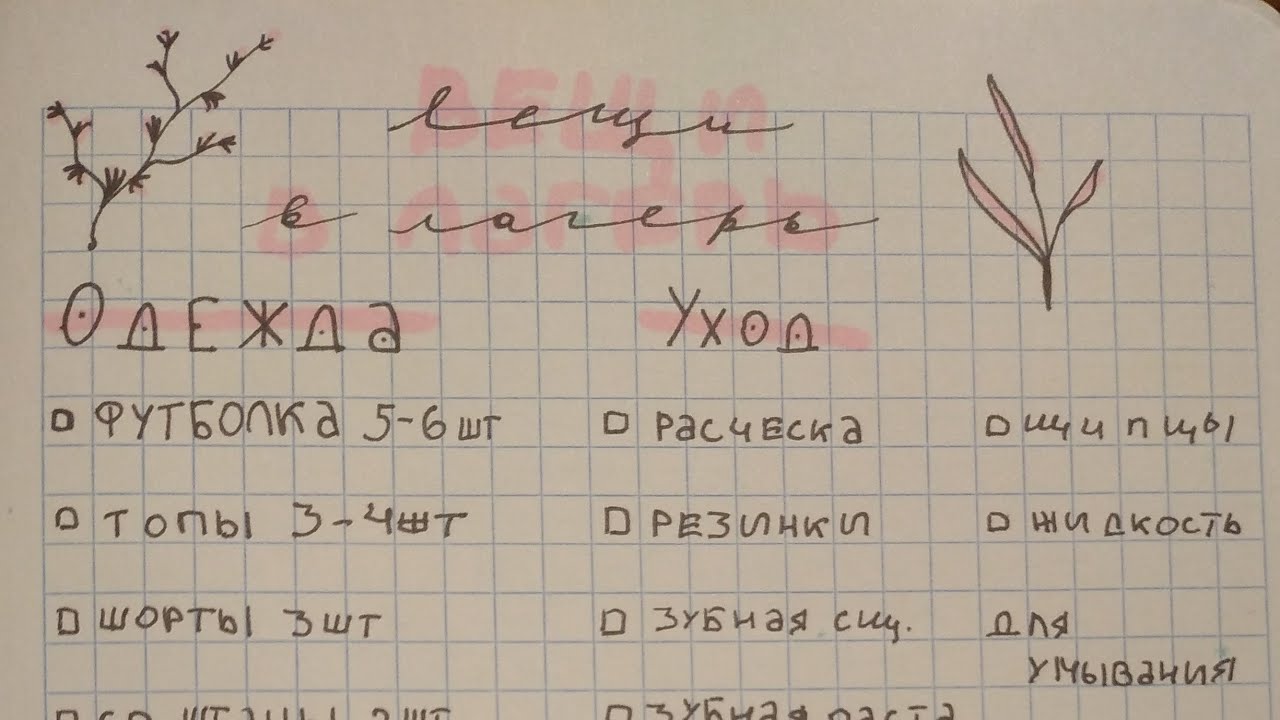 вещи
в лагерь
Одежда
Уход
ФУТБОЛКА 5-6 шт
ТОПЫ 3-4шт
ШОРТЫ 3шт
РАСЧЕСКА
РЕЗИНКИ
ЗУБНАЯ СЩ.
ЗУБНАЯ паста
ЩИПЦЫ
ЖИДКОСТЬ
ДЛЯ
УМЫВАНИЯ